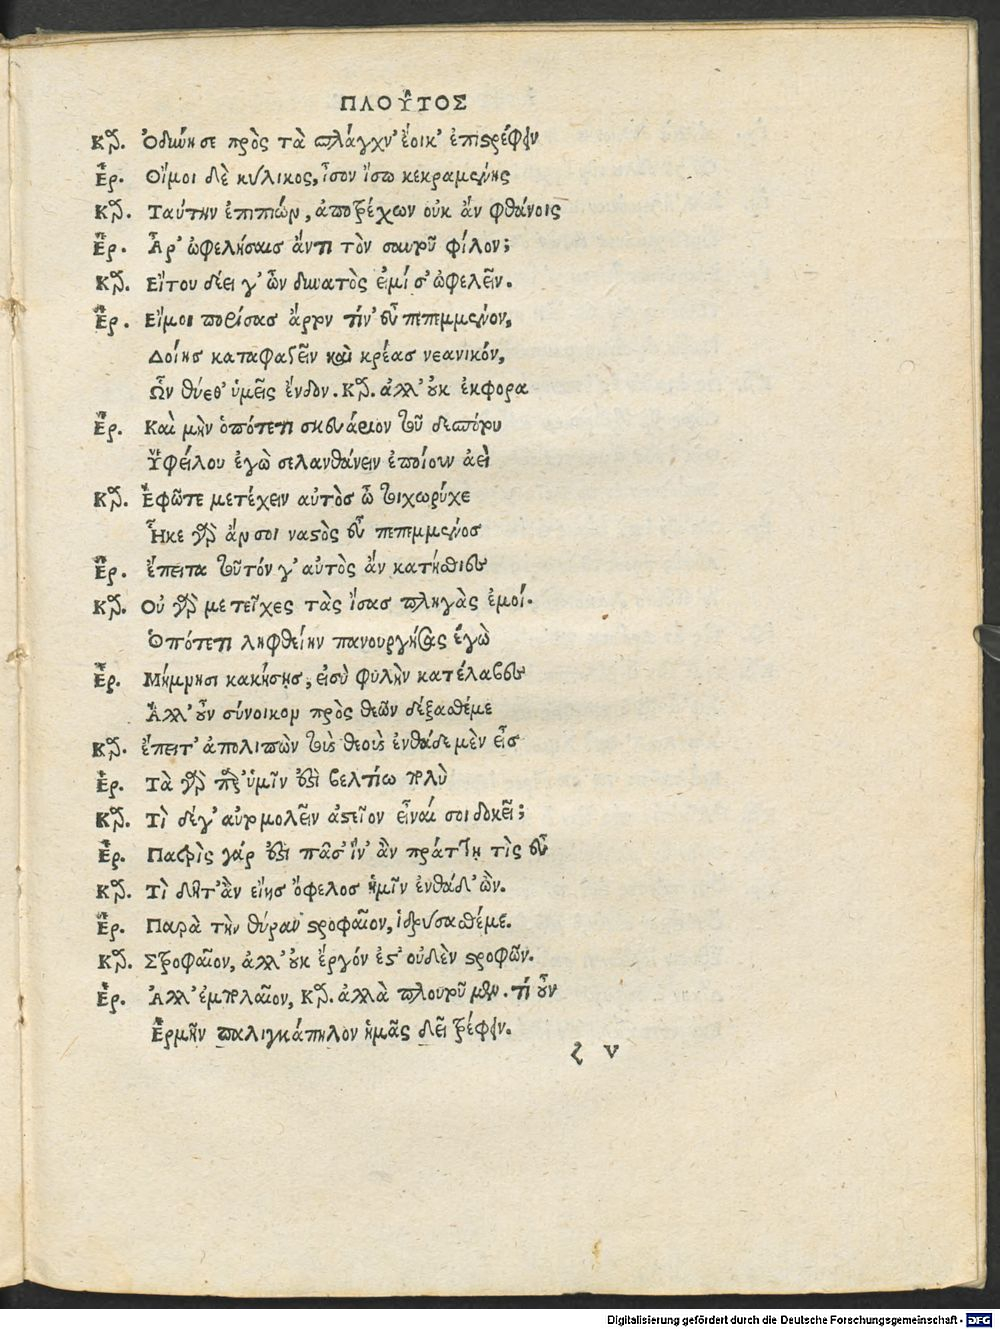 ΠΛΟΥ͂ΤΟΣ
Κα̣ρ. Ὀδύνη σε πρὸς τὰ σπλάγχν' ἔοικ' ἐπιστρέφειν
Ἑρ. Οἴμοι δὲ κύλικος, ἴσον ἴσῳ κεκραμένης
Καρ. Ταύτην ἐπιπιὼν, ἀποτρέχων οὐκ ἂν φθάνοις
Ἑρ. Ἆρ' ὠφελήσαις ἄν τι τὸν σαυτοῦ φίλον;
Καρ. Εἴ του δέει γ' ὧν δυνατὸς εἰμί σ' ὠφελεῖν.
Ἑρ. Εἴ μοι πορίσας ἄρτον τίν' εὖ πεπεμμένον,
Δοίης καταφαγεῖν καὶ κρέας νεανικόν,
Ὧν θύεθ' ὑμεῖς ἔνδον. Καρ. ἀλλ' οὐκ ἐκφορα
Ἑρ. Καὶ μὴν ὁπότε τι σκευάριον τοῦ δεσπότου
Ὑφείλου ἐγὼ σε λανθάνειν ἐποίουν ἀεὶ
Καρ. Ἐφῶτε μετέχειν αὐτὸς ὦ τοιχωρύχε
Ἧκε γὰρ ἄν σοι ναστὸς εὖ πεπεμμένος
Ἑρ. ἔπειτα τοῦτόν γ' αὐτὸς ἂν κατήσθιες
Καρ. Οὐ γὰρ μετεῖχες τὰς ἴσας πληγὰς ἐμοί.
Ὁπότε τι ληφθείην πανουργήσας ἐγὼ
Ἑρ. Μὴ μνησικακήσῃς, εἰ σὺ φυλὴν κατέλαβες
Ἀλλ' οὖν σύνοικον πρὸς θεῶν δέξασθέ με
Καρ. ἔπειτ' ἀπολιπὼν τοὺς θεοὺς ἐνθάδε μὲν εἶς
Ἑρ. Τὰ γὰρ παρ' ὑμῖν ἐστι βελτίω πολὺ
Καρ. Τὶ δέ γ' αὐτομολεῖν ἀστεῖον εἶναί σοι δοκεῖ;
Ἑρ. Πατρὶς γάρ ἐστι πᾶσ' ἵν' ἂν πράττῃ τὶς εὖ
Καρ. Τὶ δῆτ' ἂν εἴης ὄφελος ἡμῖν ἐνθάδ' ὤν.
Ἑρ. Παρὰ τὴν θύραν στροφαῖον, ἱδρύσασθέ με.
Καρ. Στροφαῖον, ἀλλ' οὐκ ἔργόν ἐστ' οὐδὲν στροφῶν.
Ἑρ. Ἀλλ' ἐμπολαῖον, Καρ. ἀλλὰ πλουτοῦμεν. τί οὖν
Ἑρμῆν παλιγκάπηλον ἡμᾶς δεῖ τρέφειν.
ζ v
Digitalisierung gefördert durch die Deutsche Forschungsgemeinschaft - DFG